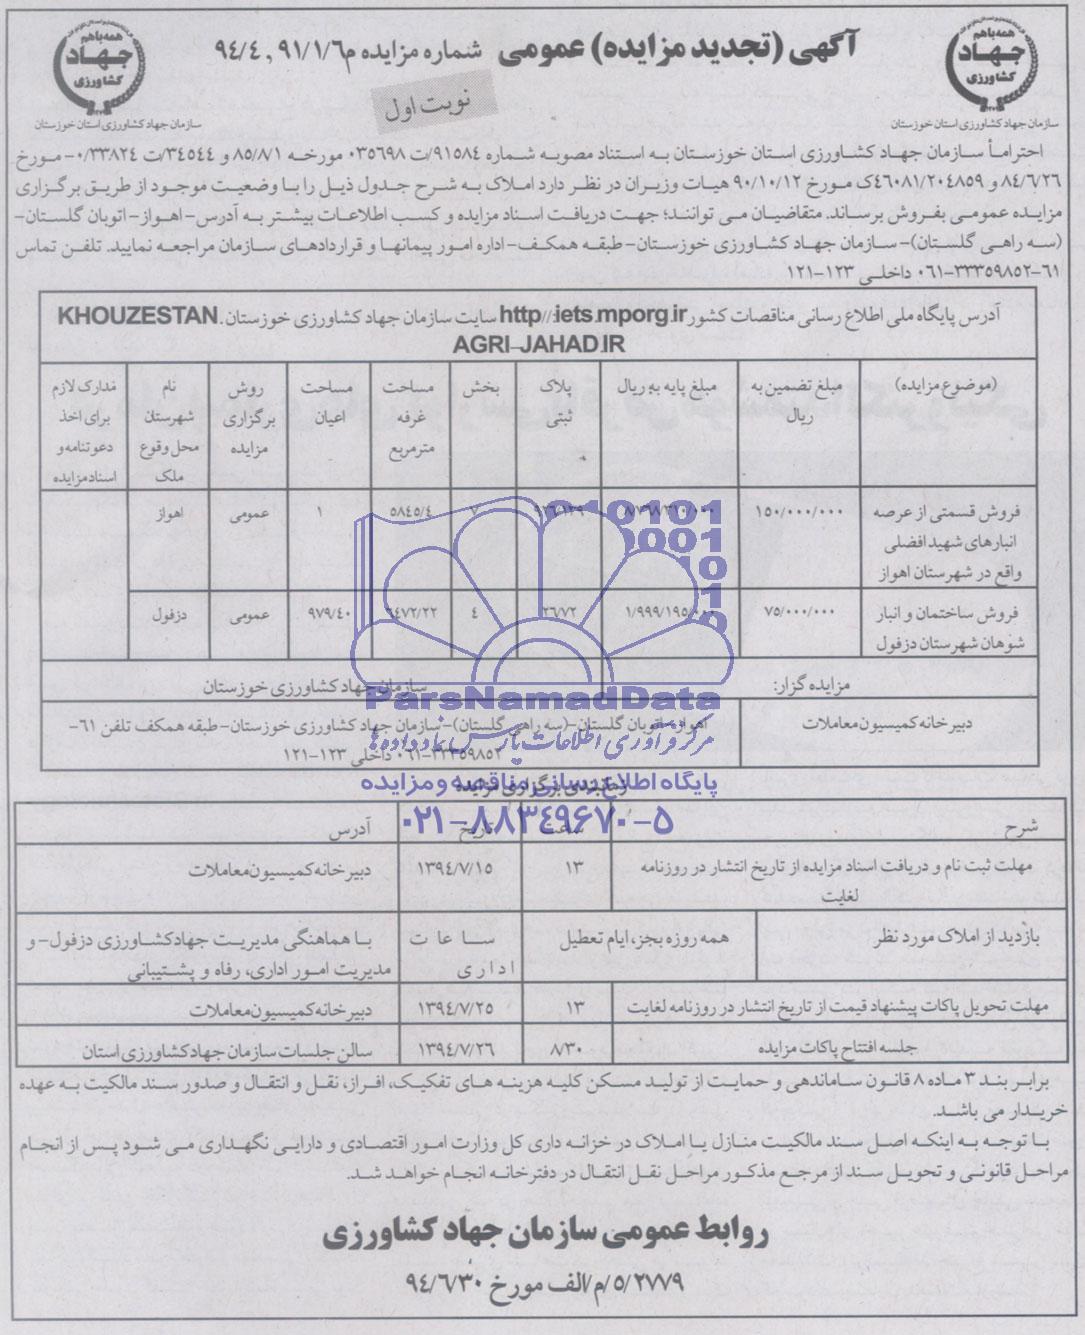 همه با هم
جهاد
کشاورزی
سازمان جهاد کشاورزی استان خوزستان
آگهی (تجدید مزایده) عمومی شماره مزایده م۹۱/۱/۶ , ۹۴/۴
نوبت اول
همه با هم
جهاد
کشاورزی
سازمان جهاد کشاورزی استان خوزستان
احتراماً سازمان جهاد کشاورزی استان خوزستان به استناد مصوبه شماره ۹۱۵۸۴/ت ۰۳۵۶۹۸ مورخه ۸۵/۸/۱ و ۳۴۵۴۴/ت ۰/۳۳۸۲۴- مورخ
۸۴/۶/۲۶ و ۴۶۰۸۱/۲۰۴۸۵۹ک مورخ ۹۰/۱۰/۱۲ هیات وزیران در نظر دارد املاک به شرح جدول ذیل را با وضعیت موجود از طریق برگزاری
مزایده عمومی بفروش برساند. متقاضیان می توانند؛ جهت دریافت اسناد مزایده و کسب اطلاعات بیشتر به آدرس-اهواز-اتوبان گلستان-
(سه راهی گلستان)-سازمان جهاد کشاورزی خوزستان-طبقه همکف-اداره امور پیمانها و قراردادهای سازمان مراجعه نمایید. تلفن تماس
۶۱-۳۳۳۵۹۸۵۲-۰۶۱ داخلی ۱۲۳-۱۲۱
آدرس پایگاه ملی اطلاع رسانی مناقصات کشور http//:iets.mporg.ir سایت سازمان جهاد کشاورزی خوزستان .KHOUZESTAN
AGRI-JAHAD.IR
(موضوع مزایده) مبلغ تضمین به ریال مبلغ پایه به ریال پلاک ثبتی بخش مساحت غرفه مترمربع مساحت اعیان روش برگزاری مزایده نام شهرستان محل وقوع ملک مدارک لازم برای اخذ دعوتنامه و اسناد مزایده
فروش قسمتی از عرصه انبارهای شهید افضلی واقع در شهرستان اهواز ۱۵۰/۰۰۰/۰۰۰ ۷ ۵۸۴۵/۴ ۱ عمومی اهواز
فروش ساختمان و انبار شوهان شهرستان دزفول ۷۵/۰۰۰/۰۰۰ ۱/۹۹۹/۱۹۵/۰۰۰ ۲۶/۷۲ ۴ ۹۷۹/۴۰ عمومی دزفول
مزایده گزار: سازمان جهاد کشاورزی خوزستان
دبیرخانه کمیسیون معاملات اهواز-اتوبان گلستان-(سه راهی گلستان)-سازمان جهاد کشاورزی خوزستان-طبقه همکف تلفن ۶۱-
۳۳۳۵۹۸۵۲-۰۶۱ داخلی ۱۲۳-۱۲۱
ParsNamadData
مرکز فرآوری اطلاعات پارس نماد داده ها
پایگاه اطلاع رسانی مناقصه و مزایده
۰۲۱-۸۸۳۴۹۶۷۰-۵
شرح ساعت تاریخ آدرس
مهلت ثبت نام و دریافت اسناد مزایده از تاریخ انتشار در روزنامه لغایت ۱۳ ۱۳۹۴/۷/۱۵ دبیرخانه کمیسیون معاملات
بازدید از املاک مورد نظر همه روزه بجز، ایام تعطیل ساعات اداری با هماهنگی مدیریت جهادکشاورزی دزفول-و مدیریت امور اداری، رفاه و پشتیبانی
مهلت تحویل پاکات پیشنهاد قیمت از تاریخ انتشار در روزنامه لغایت ۱۳ ۱۳۹۴/۷/۲۵ دبیرخانه کمیسیون معاملات
جلسه افتتاح پاکات مزایده ۸/۳۰ ۱۳۹۴/۷/۲۶ سالن جلسات سازمان جهادکشاورزی استان
برابر بند ۳ ماده ۸ قانون ساماندهی و حمایت از تولید مسکن کلیه هزینه های تفکیک، افراز، نقل و انتقال و صدور سند مالکیت به عهده
خریدار می باشد.
با توجه به اینکه اصل سند مالکیت منازل یا املاک در خزانه داری کل وزارت امور اقتصادی و دارایی نگهداری می شود پس از انجام
مراحل قانونی و تحویل سند از مرجع مذکور مراحل نقل انتقال در دفترخانه انجام خواهد شد.
روابط عمومی سازمان جهاد کشاورزی
۵/۲۷۷۹/م/الف مورخ ۹۴/۶/۳۰